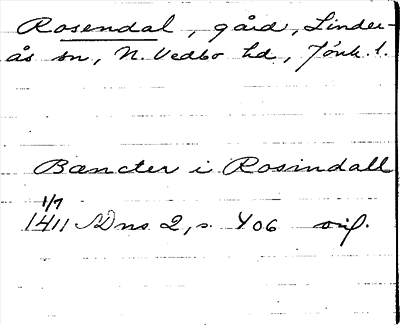 Rosendal, gård, Linder-
ås sn, N. Vedbo hd, Jönk. l.
Bæncter i Rosindall
1/7
1411 SDns 2, s. 406 orig.